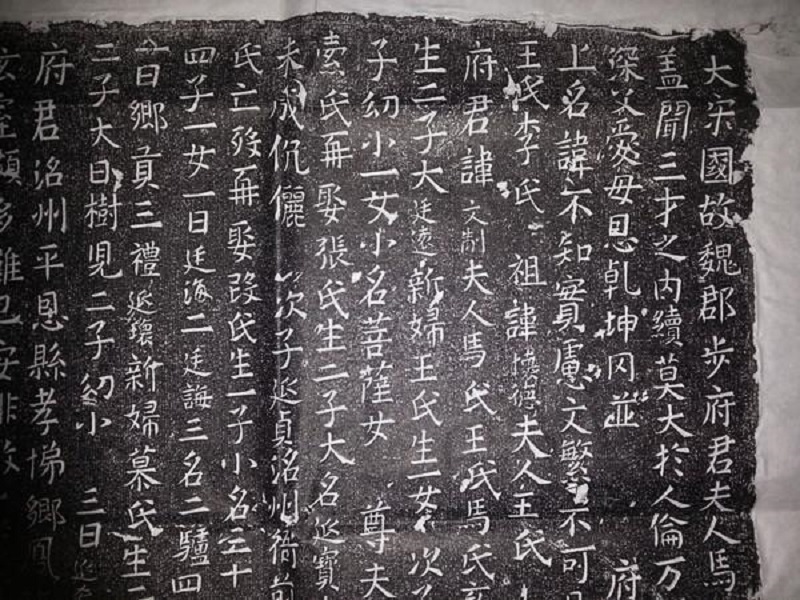 大宋國故魏郡步府君夫人馬
盖聞三才之内續莫大於人倫万
深父憂母恩乾坤罔並 府
上名諱不知實慮文繁不可
王氏李氏 祖諱 夫人王氏
府君諱文制夫人馬氏王氏馬氏
生二子大廷遠新婦王氏生一女次子
子幼小一女小名菩薩女 尊夫
氏再娶張氏生二子大名延寶
未成伉儷 次子延貞洺州衙前
氏亡殁再娶段氏生一子小名三十
四子一女一曰廷海二廷誨三名二驢四
一曰鄉貢三禮延瓌新婦慕氏生二
二子大曰樹見二子幼小 三曰延
府君洺州平恩縣孝悌鄉風
玄室願多雖已安非故